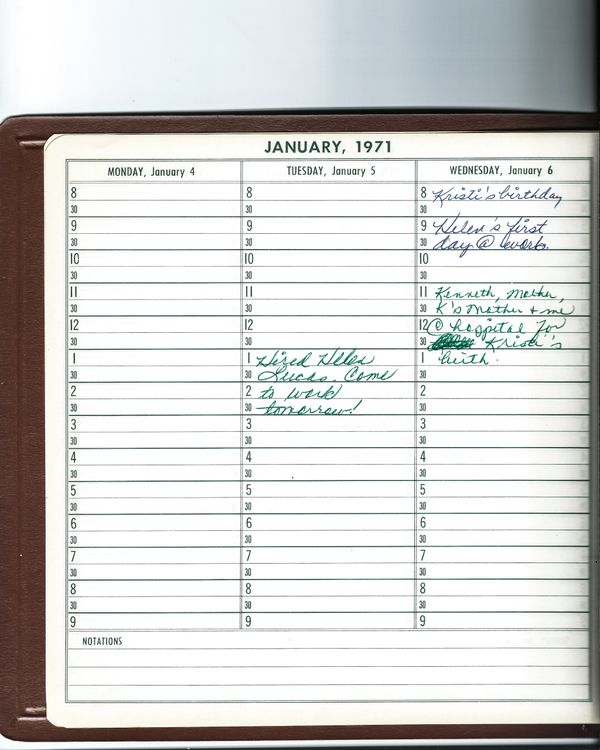 JANUARY, 1971
MONDAY, January 4
TUESDAY, January 5
WEDNESDAY, January 6
8
30
9
30
10
30
11
30
12
30
1
30
2
30
3
30
4
30
5
30
6
30
7
30
8
30
9
8
30
9
30
10
30
11
30
12
30
1 Hired Helen
30 Lucas. Come
2 to work
30 tomorrow!
3
30
4
30
5
30
6
30
7
30
8
30
9
8 Kristi's birthday
30
9 Helen's first
30 day @ work.
10
30
11 Kenneth, Mother,
30 K's Mother + me
12 @ hospital for
30 Kristi's
1 birth.
30
2
30
3
30
4
30
5
30
6
30
7
30
8
30
9
NOTATIONS